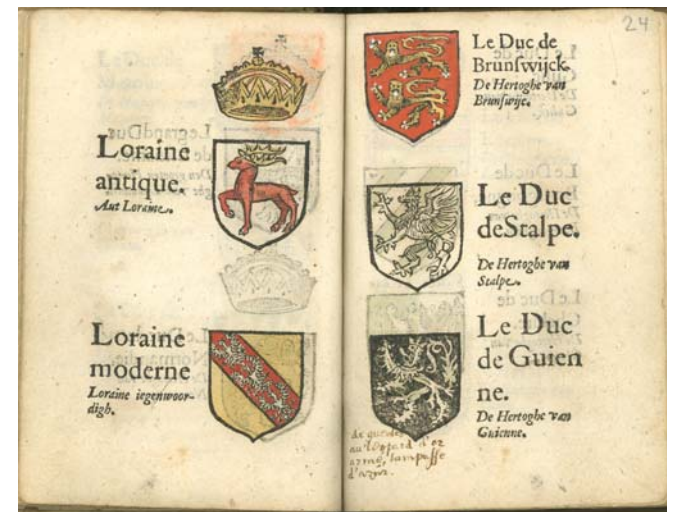 Loraine
antique.
Aut Loraine.
Loraine
moderne
Loraine iegenwoor-
digh.
24
Le Duc de
Brunſwijck.
De Hertoghe van
Brunſwijc.
Le Duc
deStalpe.
De Hertoghe van
Stalpe.
Le Duc
de Guien
ne.
De Hertoghe van
Guienne.
de gueules
au léopard d'or
armé, lampassé
d'azur.